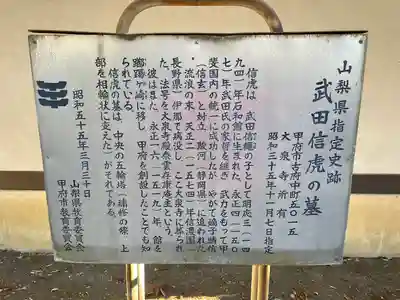 山梨県指定史跡
武田信虎の墓
甲府市古府中町五〇一五
大泉寺所有
昭和三十五年十一月七日指定
信虎は、武田信縄の子として明応三(一四
九四)年石和館に生まれた。永正四(一五〇
七)年武田氏の家督を継ぎ、武力をもって甲
斐国内の統一に成功したが、やがて嫡子晴信
(信玄)と対立、駿河(静岡県)に追われた
。流浪の末、天正二(一五七四)年信濃国(
長野県)伊那で病没し、ここ大泉寺に葬られ
た。法号を大泉寺殿泰雲存康庵主という。
彼はまた、永正十六(一五一九)年、館を
躑躅ヶ崎に移し、甲府を創設したことでも知
られている。
信虎の墓は、中央の五輪塔(補修の際、上
部を相輪状に変えた)がそれである。
昭和五十五年三月三十日
山梨県教育委員会
甲府市教育委員会